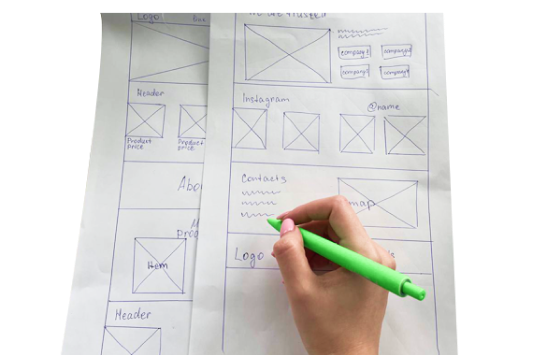 Logo
Header
Product
price
Product
price
Item
Header
company
company
company
company
Instagram
@name
Contacts
map
Logo